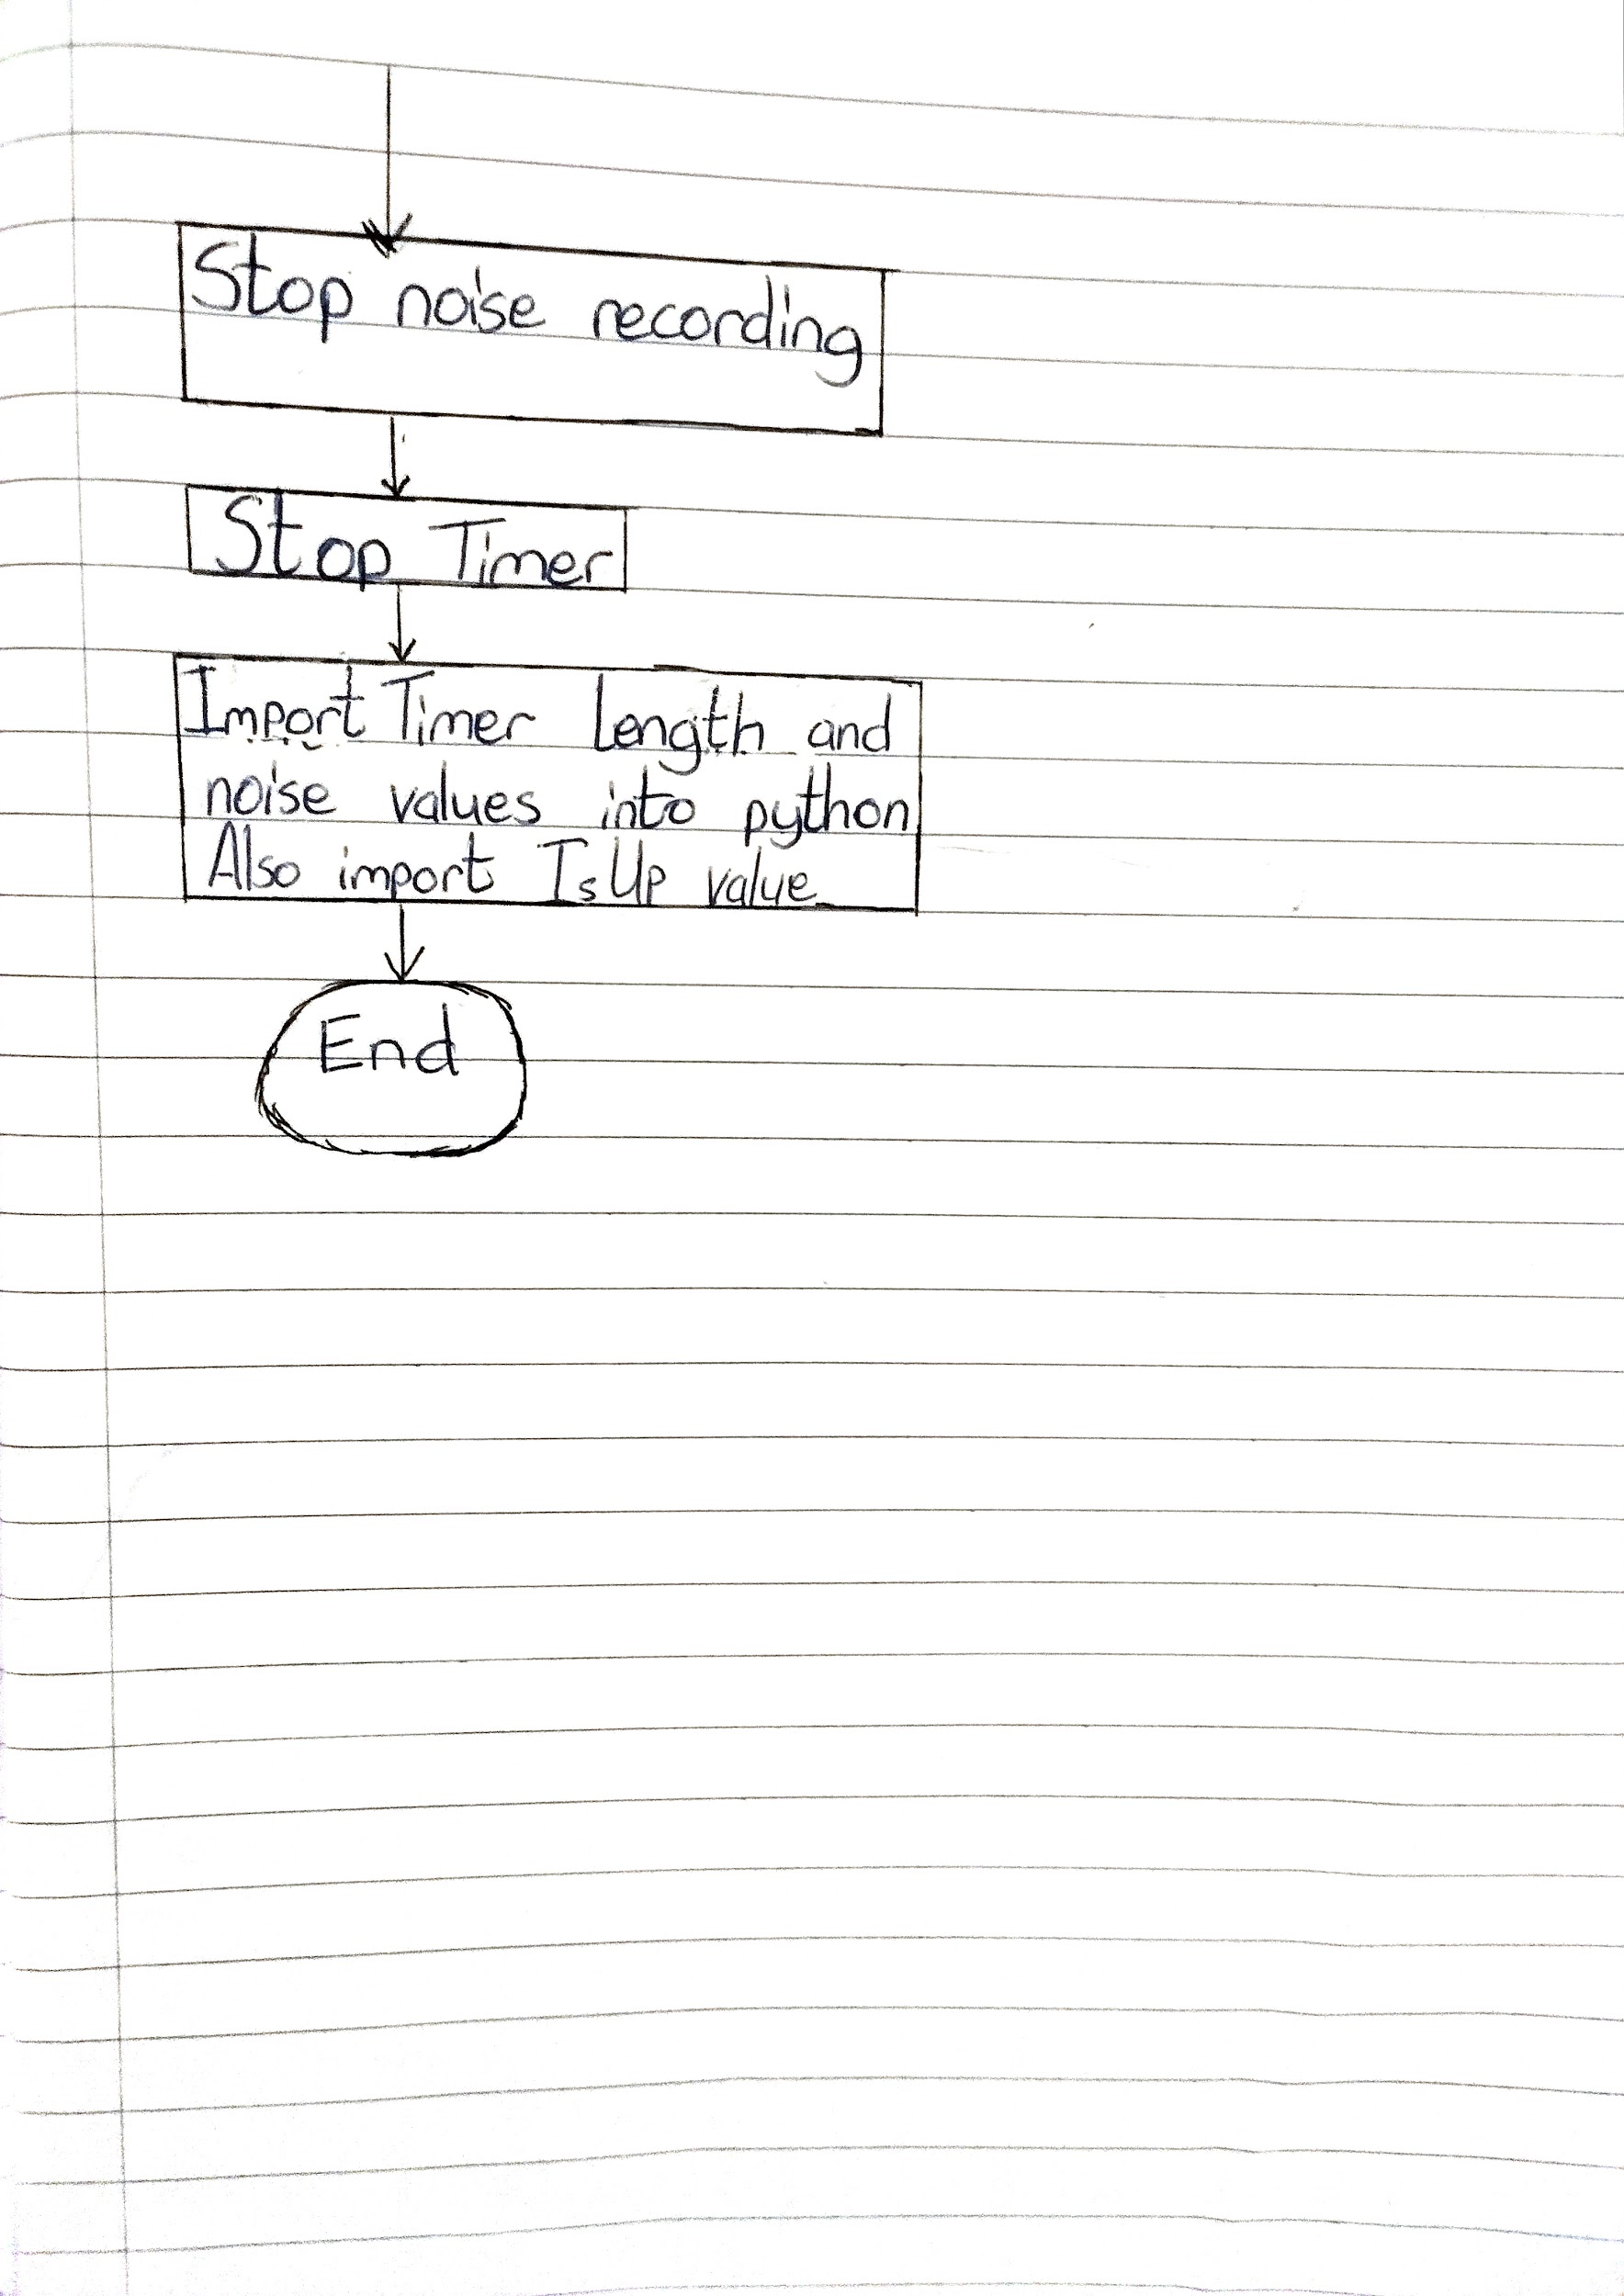 Stop noise recording
Stop Timer
Import Timer Length and
noise values into python
Also import IsUp value
End